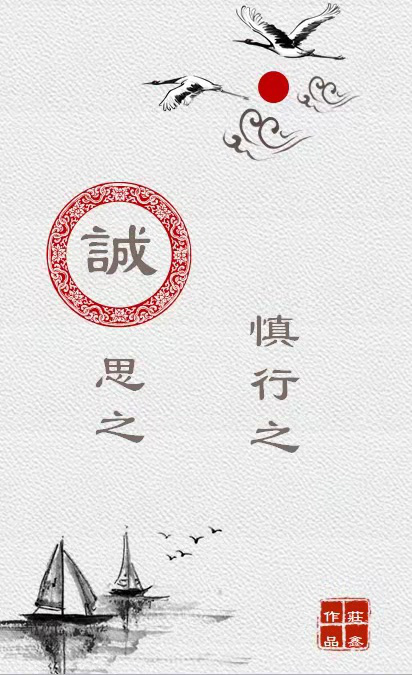 誠思之
慎行之
莊鑫
作品